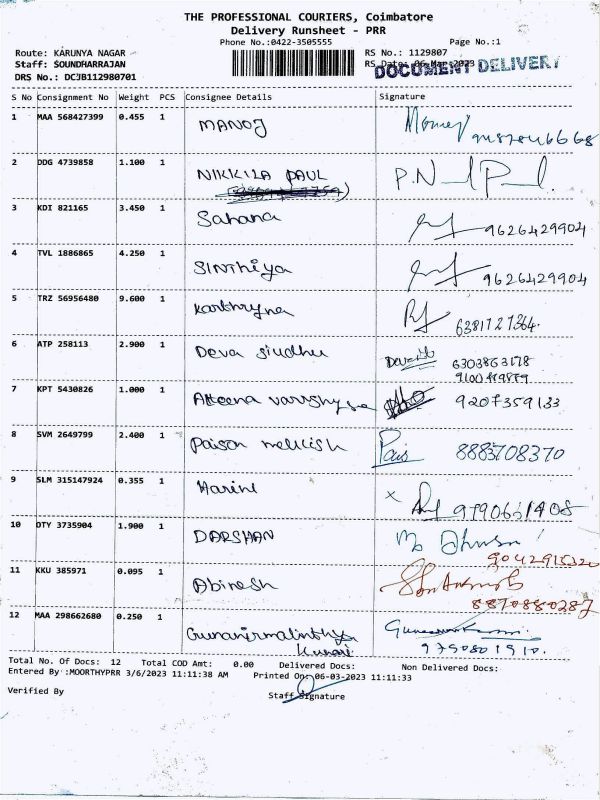 THE PROFESSIONAL COURIERS, Coimbatore
Delivery Runsheet - PRR
Phone No.:0422-3505555 Page No.:1
Route: KARUNYA NAGAR RS No.: 1129807
Staff: SOUNDHARRAJAN RS Date: 06-Mar-2023
DOCUMENT DELIVERY
DRS No.: DCJB112980701
S No Consignment No Weight PCS Consignee Details Signature
1 MAA 568427399 0.455 1 MANOJ
2 DDG 4739858 1.100 1 NIKKILA PAUL P.
3 KDI 821165 3.450 1 Sahana 9626429904
4 TVL 1886865 4.250 1 SINThiya 9626429904
5 TRZ 56956480 9.600 1 6381727364
6 ATP 258113 2.900 1 Deva 6303863178
7 KPT 5430826 1.000 1 9207359133
8 SVM 2649799 2.400 1 Paison Pais 8883708370
9 SLM 315147924 0.355 1 Harini x
10 OTY 3735904 1.900 1 DARSHAN
11 KKU 385971 0.095 1 Abinesh
8870880287
12 MAA 298662680 0.250 1
9750801910.
Total No. Of Docs: 12 Total COD Amt: 0.00 Delivered Docs: Non Delivered Docs:
Entered By :MOORTHYPRR 3/6/2023 11:11:38 AM Printed On: 06-03-2023 11:11:33
Verified By Staff Signature